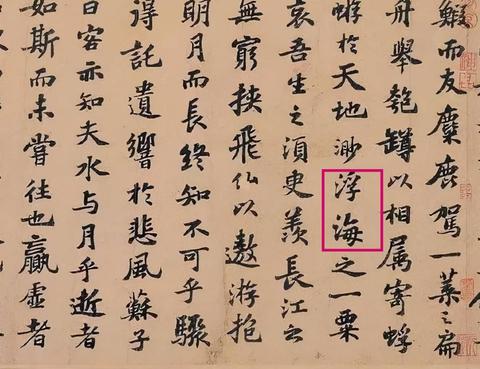 鰕而友麋鹿駕一葉之扁
舟舉匏罇以相属寄蜉
蝣於天地渺浮海之一粟
哀吾生之須臾羨長江之
無窮挾飛仙以遨游抱
明月而長終知不可乎驟
得託遺響於悲風蘇子
曰客亦知夫水与月乎逝者
如斯而未嘗往也贏虚者